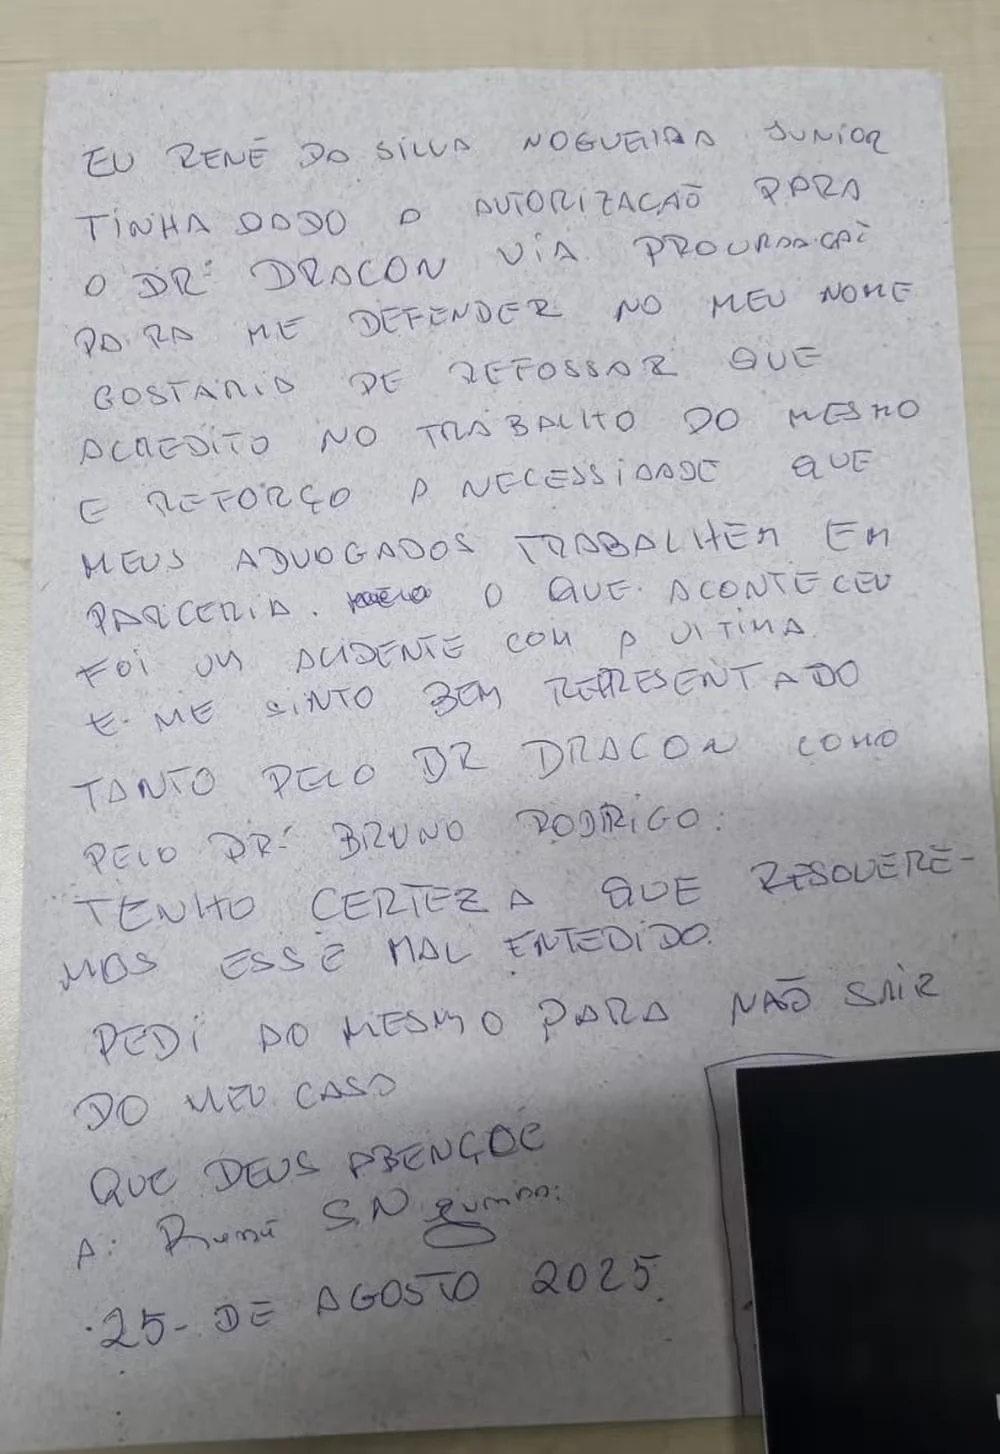 EU RENÊ DA SILVA NOGUEIRA JUNIOR
TINHA DADO A AUTORIZAÇAÕ PARA
O DR. DRACON VIA PROCURAÇAÕ
PARA ME DEFENDER NO MEU NOME
GOSTARIA DE REFOSSAR QUE
ACREDITO NO TRABALHO DO MESMO
E REFORÇO A NECESSIDADE QUE
MEUS ADVOGADOS TRABALHEM EM
PARCERIA. O QUE ACONTECEU
FOI UM ACIDENTE COM A VITIMA
E ME SINTO BEM REPRESENTADO
TANTO PELO DR DRACON COMO
PELO DR. BRUNO RODRIGO.
TENHO CERTEZA QUE RESOLVERE-
MOS ESSE MAL ENTEDIDO.
PEDI AO MESMO PARA NÃO SAIR
DO MEU CASO
QUE DEUS ABENÇOE
A: Renê S.N Junior:
25- DE AGOSTO 2025.